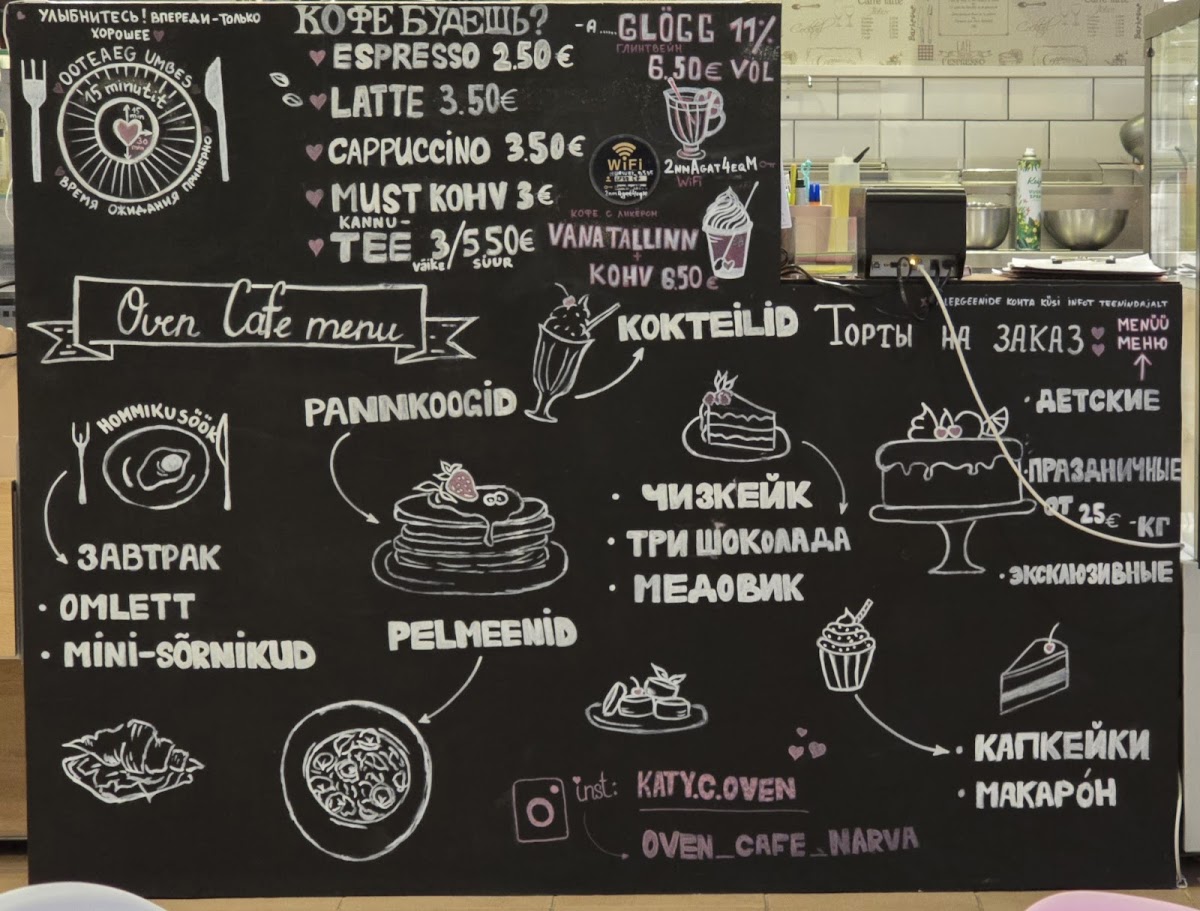 УЛЫБНИТЕСЬ! ВПЕРЕДИ-ТОЛЬКО
ХОРОШЕЕ
OOTEAEG UMBES
15 minutit!
ВРЕМЯ ОЖИДАНИЯ ПРИМЕРНО
КОФЕ БУДЕШЬ?
ESPRESSO 2.50€
LATTE 3.50€
CAPPUCCINO 3.50€
MUST KOHV 3€
KANNU-
TEE 3/5.50€
väike SUUR
-A..... GLÖGG 11%
ГЛИНТВЕЙН
6.50€ VOL
WiFi
2nnAgat4eqM
WiFi
КОФЕ С ЛИКЁРОМ
VANA TALLINN
+
KOHV 6.50€
Oven Cafe menu
HOMMIKUSÖÖK
ЗАВТРАК
• OMLETT
• MINI-SÕRNIKUD
PANNKOOGID
PELMEENID
KOKTEILID
• ЧИЗКЕЙК
• ТРИ ШОКОЛАДА
• МЕДОВИК
LERGEENIDE KOHTA KÜSI INFOT TEENINDAJALT
ТОРТЫ НА ЗАКАЗ
MENÜÜ
МЕНЮ
• ДЕТСКИЕ
• ПРАЗДНИЧНЫЕ
ОТ 25€ -КГ
• ЭКСКЛЮЗИВНЫЕ
• КАПКЕЙКИ
• МАКАРÓН
inst: KATY.C.OVEN
OVEN_CAFE_NARVA